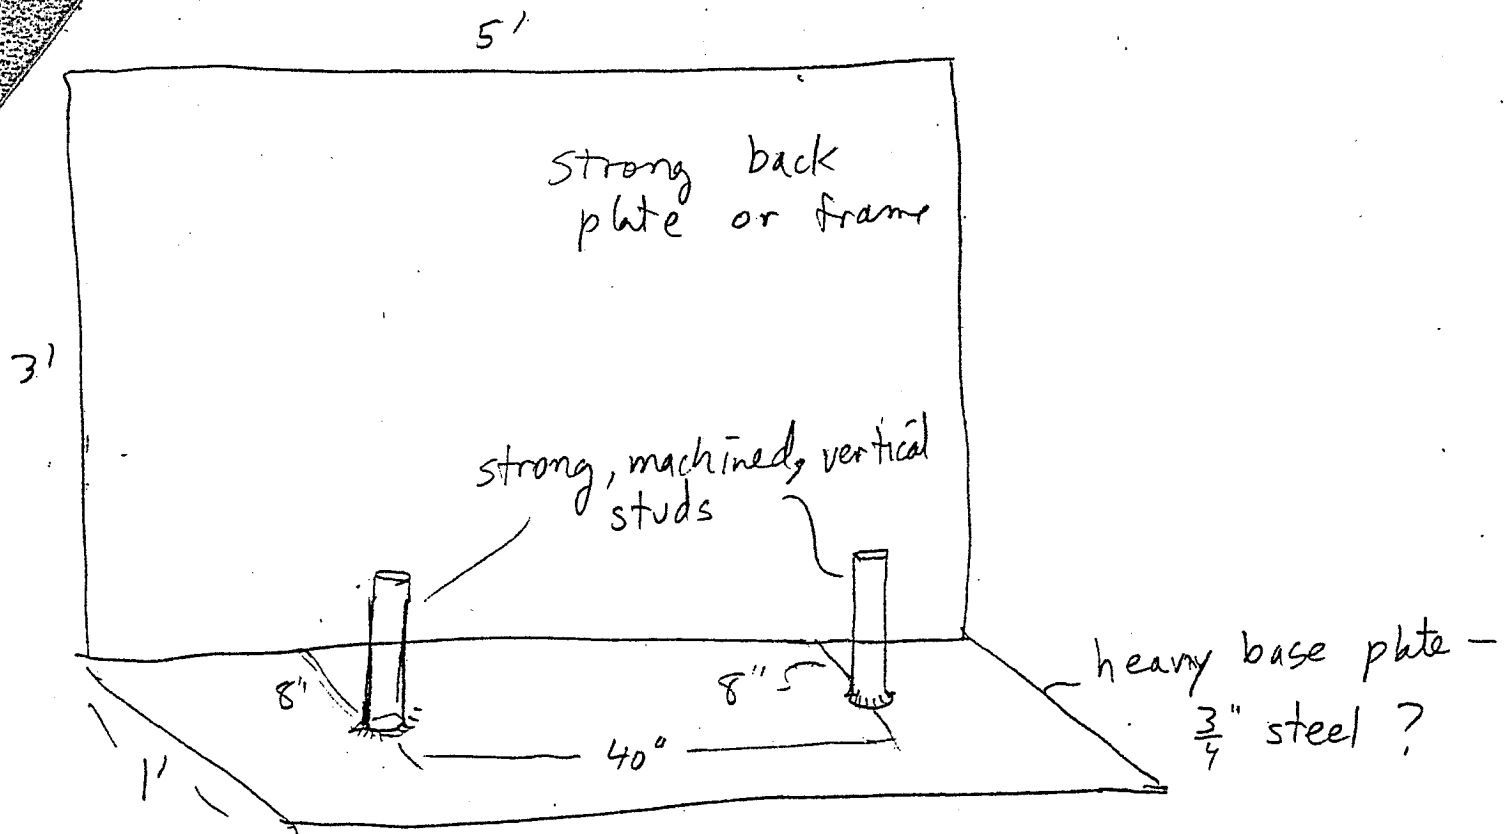 5'
strong back
plate or frame
3'
strong, machined, vertical
studs
8"
8"
heavy base plate —
3/4" steel ?
40"
1'